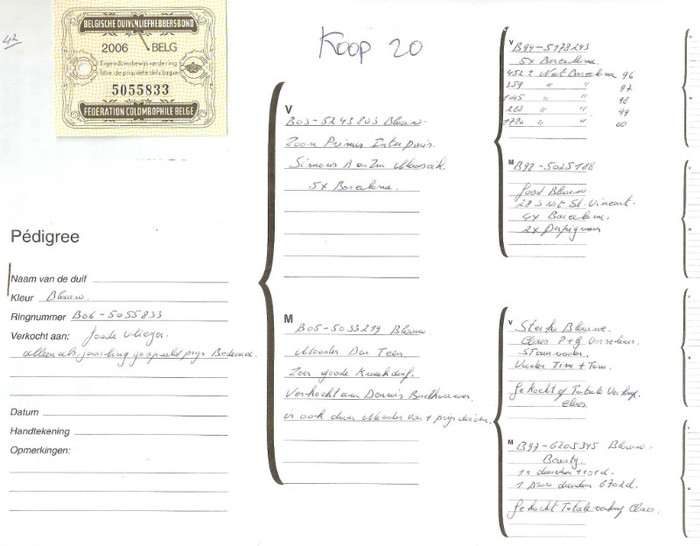 42
BELGISCHE DUIVENLIEFHEBBERSBOND
2006 BELG
Eigendomsbewijs van de ring
Titre de propriété de la bague
5055833
FEDERATION COLOMBOPHILE BELGE
Koop 20
Pédigree
Naam van de duif
Kleur Blauw
Ringnummer B06-5055833
Verkocht aan: Goede vlieger
alleen als jaarling gespeeld prijs
Datum
Handtekening
Opmerkingen:
V
B03-5243803 Blauw
Zoon Primus Inter Paris
Simons A en Zn
5x Barcelona
M
B05-5033219 Blauw
Moeder Den Teen
Zeer goede Kweekduif
Verkocht aan Dennis
is ook de Moeder van 1 prijs
V
B94-5173243
5x Barcelona
452 Nat Barcelona 96
359 " " 97
1045 " " 98
282 " " 99
1720 " " 00
M
B98-5025188
Goed Blauw
28 Nat St. Vincent
4x Barcelona
2x Perpignan
V
Sterke Blauwe
Claes P+G
Stamvader
Vader Tim + Tom
Gekocht op Totale Verkoop
Claes
M
B97-6205345 Blauw
Beauty
1e 1101 d.
1 6702 d.
Gekocht Totale verkoop Claes